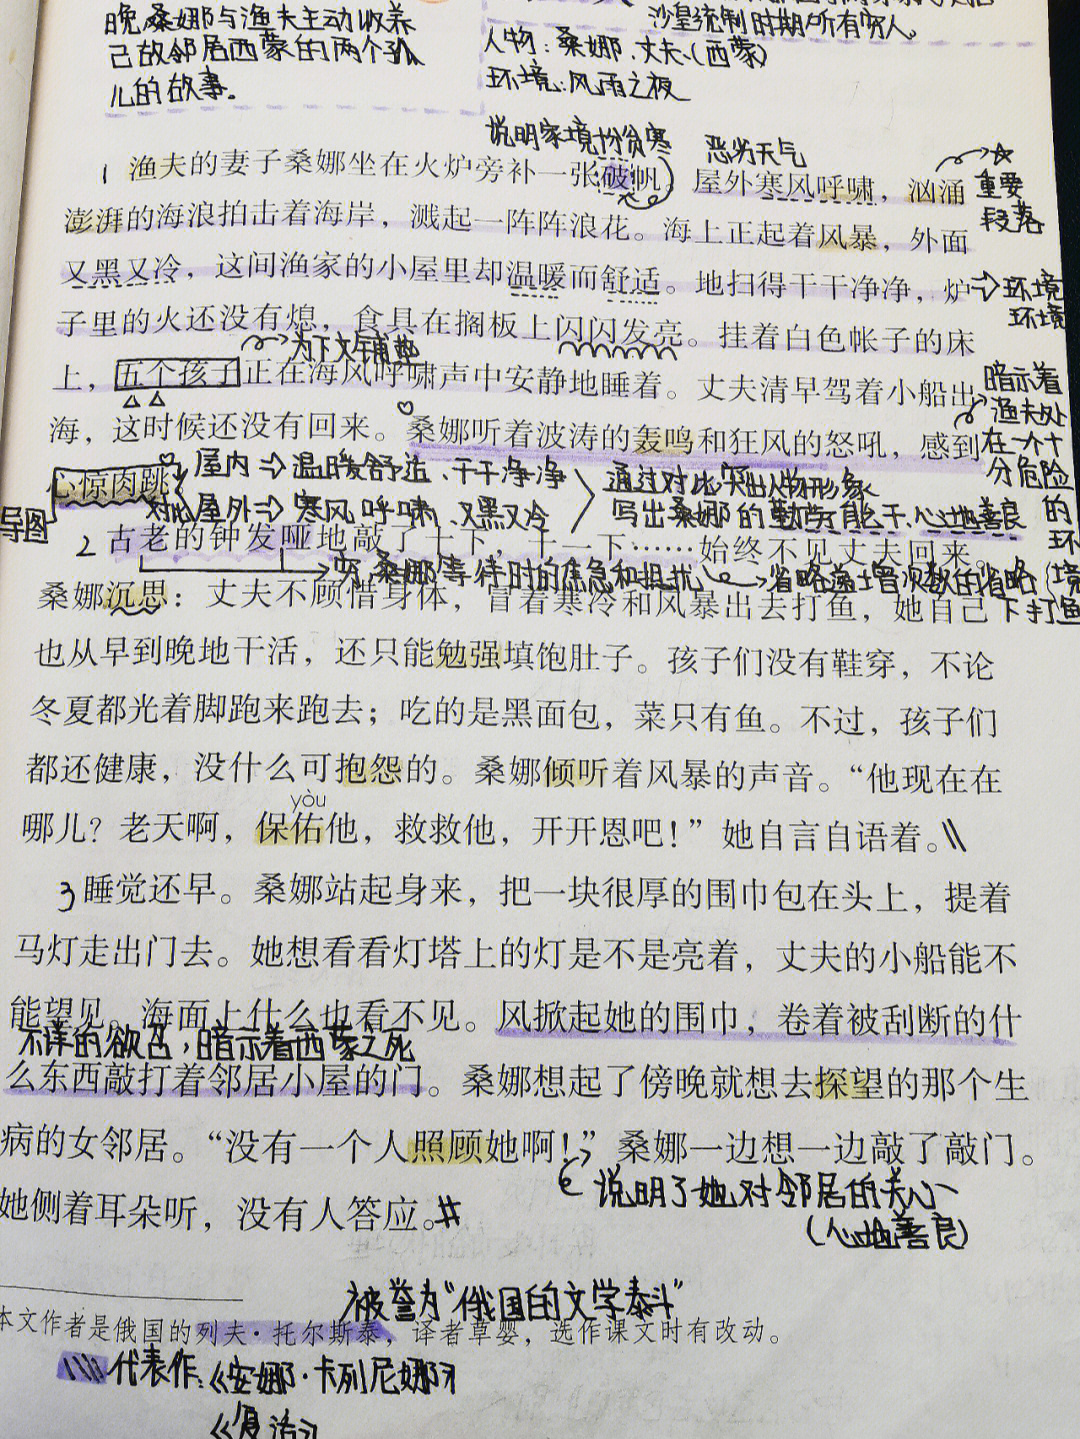 晚,桑娜与渔夫主动收养
己故邻居西蒙的两个孤
儿的故事。
沙皇统制时期所有穷人。
人物:桑娜、丈夫、(西蒙)
环境:风雨之夜
说明家境十分贫寒
恶劣天气
1 渔夫的妻子桑娜坐在火炉旁补一张破帆。屋外寒风呼啸,汹涌
重要
段落
澎湃的海浪拍击着海岸,溅起一阵阵浪花。海上正起着风暴,外面
又黑又冷,这间渔家的小屋里却温暖而舒适。地扫得干干净净,炉
环境
环境
子里的火还没有熄,食具在搁板上闪闪发亮。挂着白色帐子的床
为下文铺垫
上,五个孩子正在海风呼啸声中安静地睡着。丈夫清早驾着小船出
海,这时候还没有回来。桑娜听着波涛的轰鸣和狂风的怒吼,感到
暗示着
渔夫处
在一个十
分危险
的
环
境
下打鱼
心惊肉跳。
导图
对比
屋内⇒温暖舒适、干干净净
屋外⇒寒风呼啸、又黑又冷
通过对比突出人物形象
写出桑娜的勤劳能干、心地善良
2 古老的钟发哑地敲了十下,十一下……始终不见丈夫回来。
桑娜等待时的焦急和担忧
省略递增次数的省略
桑娜沉思:丈夫不顾惜身体,冒着寒冷和风暴出去打鱼,她自己
也从早到晚地干活,还只能勉强填饱肚子。孩子们没有鞋穿,不论
冬夏都光着脚跑来跑去;吃的是黑面包,菜只有鱼。不过,孩子们
都还健康,没什么可抱怨的。桑娜倾听着风暴的声音。“他现在在
yòu
哪儿?老天啊,保佑他,救救他,开开恩吧!”她自言自语着。
3 睡觉还早。桑娜站起身来,把一块很厚的围巾包在头上,提着
马灯走出门去。她想看看灯塔上的灯是不是亮着,丈夫的小船能不
能望见。海面上什么也看不见。风掀起她的围巾,卷着被刮断的什
不详的欲召,暗示着西蒙之死
么东西敲打着邻居小屋的门。桑娜想起了傍晚就想去探望的那个生
病的女邻居。“没有一个人照顾她啊!”桑娜一边想一边敲了敲门。
说明了她对邻居的关心
(心地善良)
她侧着耳朵听,没有人答应。
被誉为“俄国的文学泰斗”
本文作者是俄国的列夫·托尔斯泰,译者草婴,选作课文时有改动。
代表作:《安娜·卡列尼娜》
《复活》